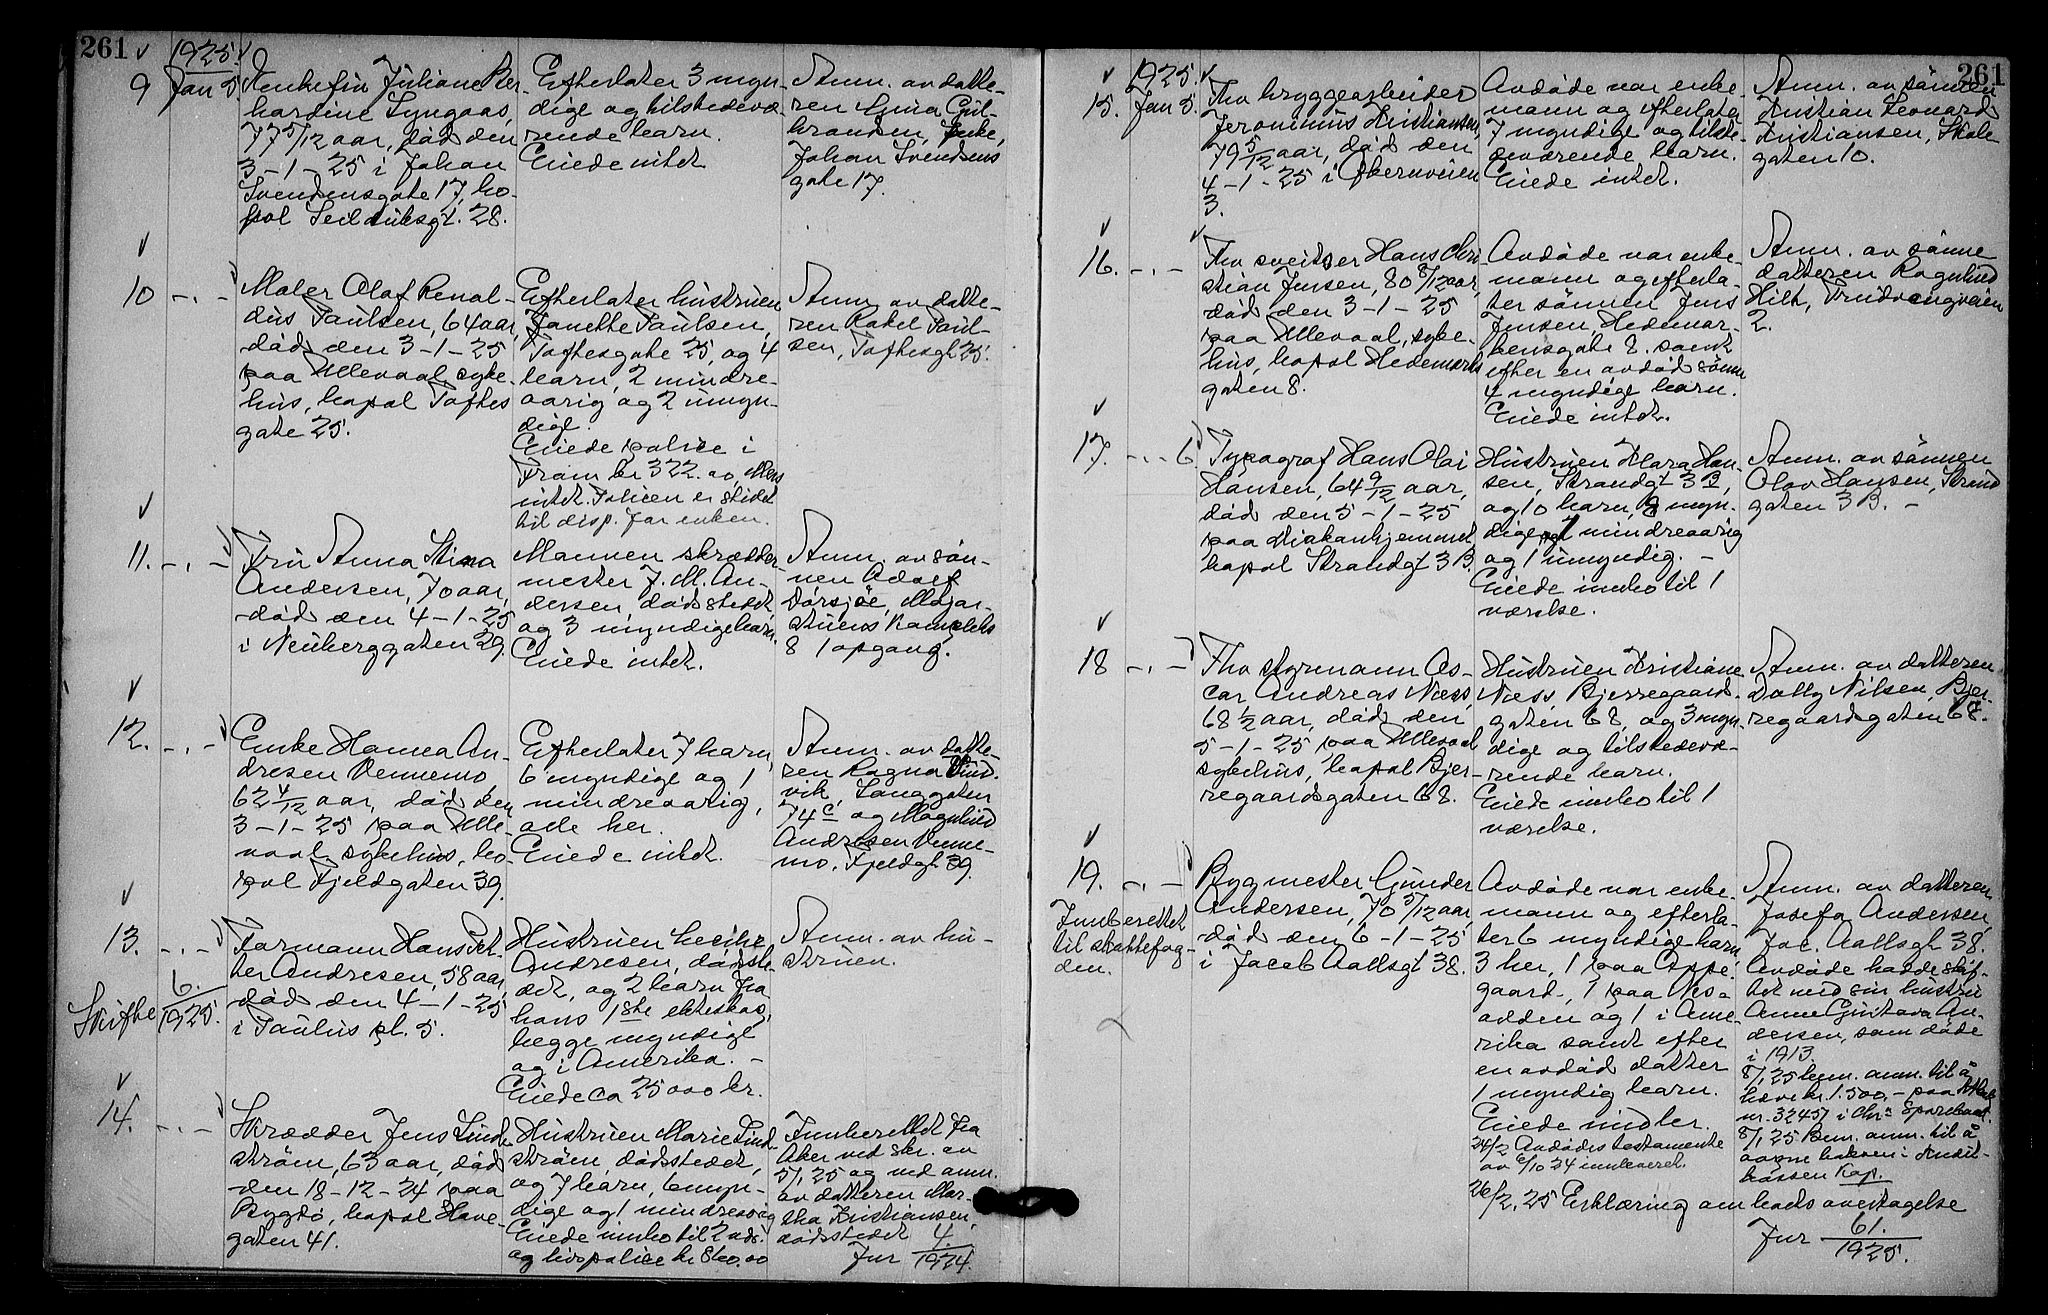 261
1925.
9 Jan 5. Enkefru Juliane Ber-
hardine Lyngaas,
77 5/12 aar, død den
3-1-25 i Johan
Svendsensgate 17, bo-
pæl Seilduksgt. 28.
Efterlater 3 myn-
dige og tilstedevæ-
rende barn.
Eiede intet
Anm. av datte-
ren Gina Gul-
brandsen, Enke,
Johan Svendsens
gate 17.
10 -.- Maler Olaf Renal-
dus Paulsen, 64 aar,
død den 3-1-25
paa Ullevaal syke-
hus, bopæl Toftes
gate 25.
Efterlater hustruen
Janette Paulsen,
Toftesgate 25, og 4
barn, 2 mindre-
aarig og 2 umyn-
dige.
Eiede police i
Fram kr 322.00, ellers
intet. Policen er stillet
til disp. for enken.
Anm. av datte-
ren Rakel Paul-
sen, Toftesgt 25.
11. -.- Fru Anna Stina
Andersen, 70 aar,
død den 4-1-25
i Neuberggaten 29.
Mannen skrædder-
mester J. M. An-
dersen, dødsstedet
og 3 myndige barn.
Eiede intet.
Anm. av søn-
nen Adolf
Dørsjøe, Major-
stuens Kompleks
8 1 opgang.
12. -.- Enke Hanna An-
dresen Vennemo,
62 4/12 aar, død den
3-1-25 paa Ulle-
vaal sykehus, bo-
pæl Fjeldgaten 39.
Efterlater 7 barn,
6 myndige og 1
mindreaarig,
alle her.
Eiede intet.
Anm. av datte-
ren Ragna
vik, Langgaten
74 c og Magnhild
Andresen Venne-
mo, Fjeldgt 39.
13. -.- Formann Hans Pet-
ter Andresen, 58 aar,
død den 4-1-25
i Paulus pl. 5.
Skifte 6./1925.
Hustruen Cecilie
Andresen, dødsste-
det, og 2 barn fra
hans 1ste ekteskap,
begge myndige
og i Amerika. -
Eiede ca 25000 kr.
Anm. av hu-
struen.
14. -.- Skrædder Jens Lind-
strøm, 63 aar, død
den 18-12-24 paa
Bygdø, bopæl Have-
gaten 41.
Hustruen Marie Lind-
strøm, dødsstedet,
og 7 barn, 6 myn-
dige og 1 mindreaarig
Eiede innbo til 2 væ.
og livspolice kr 800.00
Innberettet fra
Aker ved skr. av
5/1 25 og ved anm.
av datteren Mar-
tha Kristiansen,
dødsstedet
Jur 4./1924.
261
1925
15. Jan 5. Fhv bryggearbeider
Jeronimus Kristiansen,
79 5/12 aar, død den
4-1-25 i Økernveien
3.
Avdøde var enke-
mann og efterlater
7 myndige og tilste-
deværende barn.
Eiede intet.
Anm. av sønnen
Kristian Leonard
Kristiansen, Skole
gaten 10.
16. -.- Fhv sveitser Hans Chri
stian Jensen, 80 8/12 aar,
død den 3-1-25
paa Ullevaal syke-
hus, bopæl Hedemarks
gaten 8.
Avdøde var enke-
mann og efterla-
ter sønnen Jens
Jensen, Hedemar-
kensgate 8. samt
efter en avdød sønn
4 myndige barn.
Eiede intet.
Anm. av sønne
datteren Ragnhild
Hilt, Trudvangveien
2.
17. -.- 6 Typograf Hans Olai
Hansen, 64 9/12 aar,
død den 5-1-25
paa Diakonhjemmet,
bopæl Strandgt 3 B.
Hustruen Klara Han-
sen, Strandgt 3 B,
og 10 barn, 8 myn-
dige, 1 mindreaarig
og 1 umyndig. -
Eiede innbo til 1
værelse.
Anm. av sønnen
Olav Hansen, Strand
gaten 3 B. -
18 -.- Fhv styrmann Os-
car Andreas Næss,
68 1/2 aar, død den
5-1-25 paa Ullevaal
sykehus, bopæl Bjer-
regaardsgaten 68.
Hustruen Kristiane
Næss, Bjerregaards-
gaten 68, og 3 myn-
dige og tilstedevæ-
rende barn.
Eiede innbo til 1
værelse.
Anm. av datteren
Dolly Nilsen, Bjer-
regaardsgaten 68.
19. -.- Bygmester Gunder
Andersen, 70 5/12 aar,
død den 6-1-25
i Jacob Aallsgt 38.
Innberettet
til skattefog-
den.
Avdøde var enke-
mann og efterla-
ter 6 myndige barn,
3 her, 1 paa Oppe-
gaard, 1 paa Neso
odden og 1 i Ame-
rika samt efter
en avdød datter
1 myndig barn.
Eiede midler.
24/2 Avdødes testamente
av 6/10 24 innleveret.
26/2 25 Erklæring om boets overtagelse
Anm. av datteren
Josefa Andersen,
Jac. Aallsgt 38.
Avdøde hadde skif-
tet med sin hustru
Anne Gustava An-
dersen, som døde
i 1913.
8/1 25 bem. anm. til å
heve kr. 1.500,- paa
nr. 32457 i Chr.a Sparebank.
8/1 25 Bem. anm. til å
aapne boksen i Andel-
bossen Kap.
Jur 61./1925.